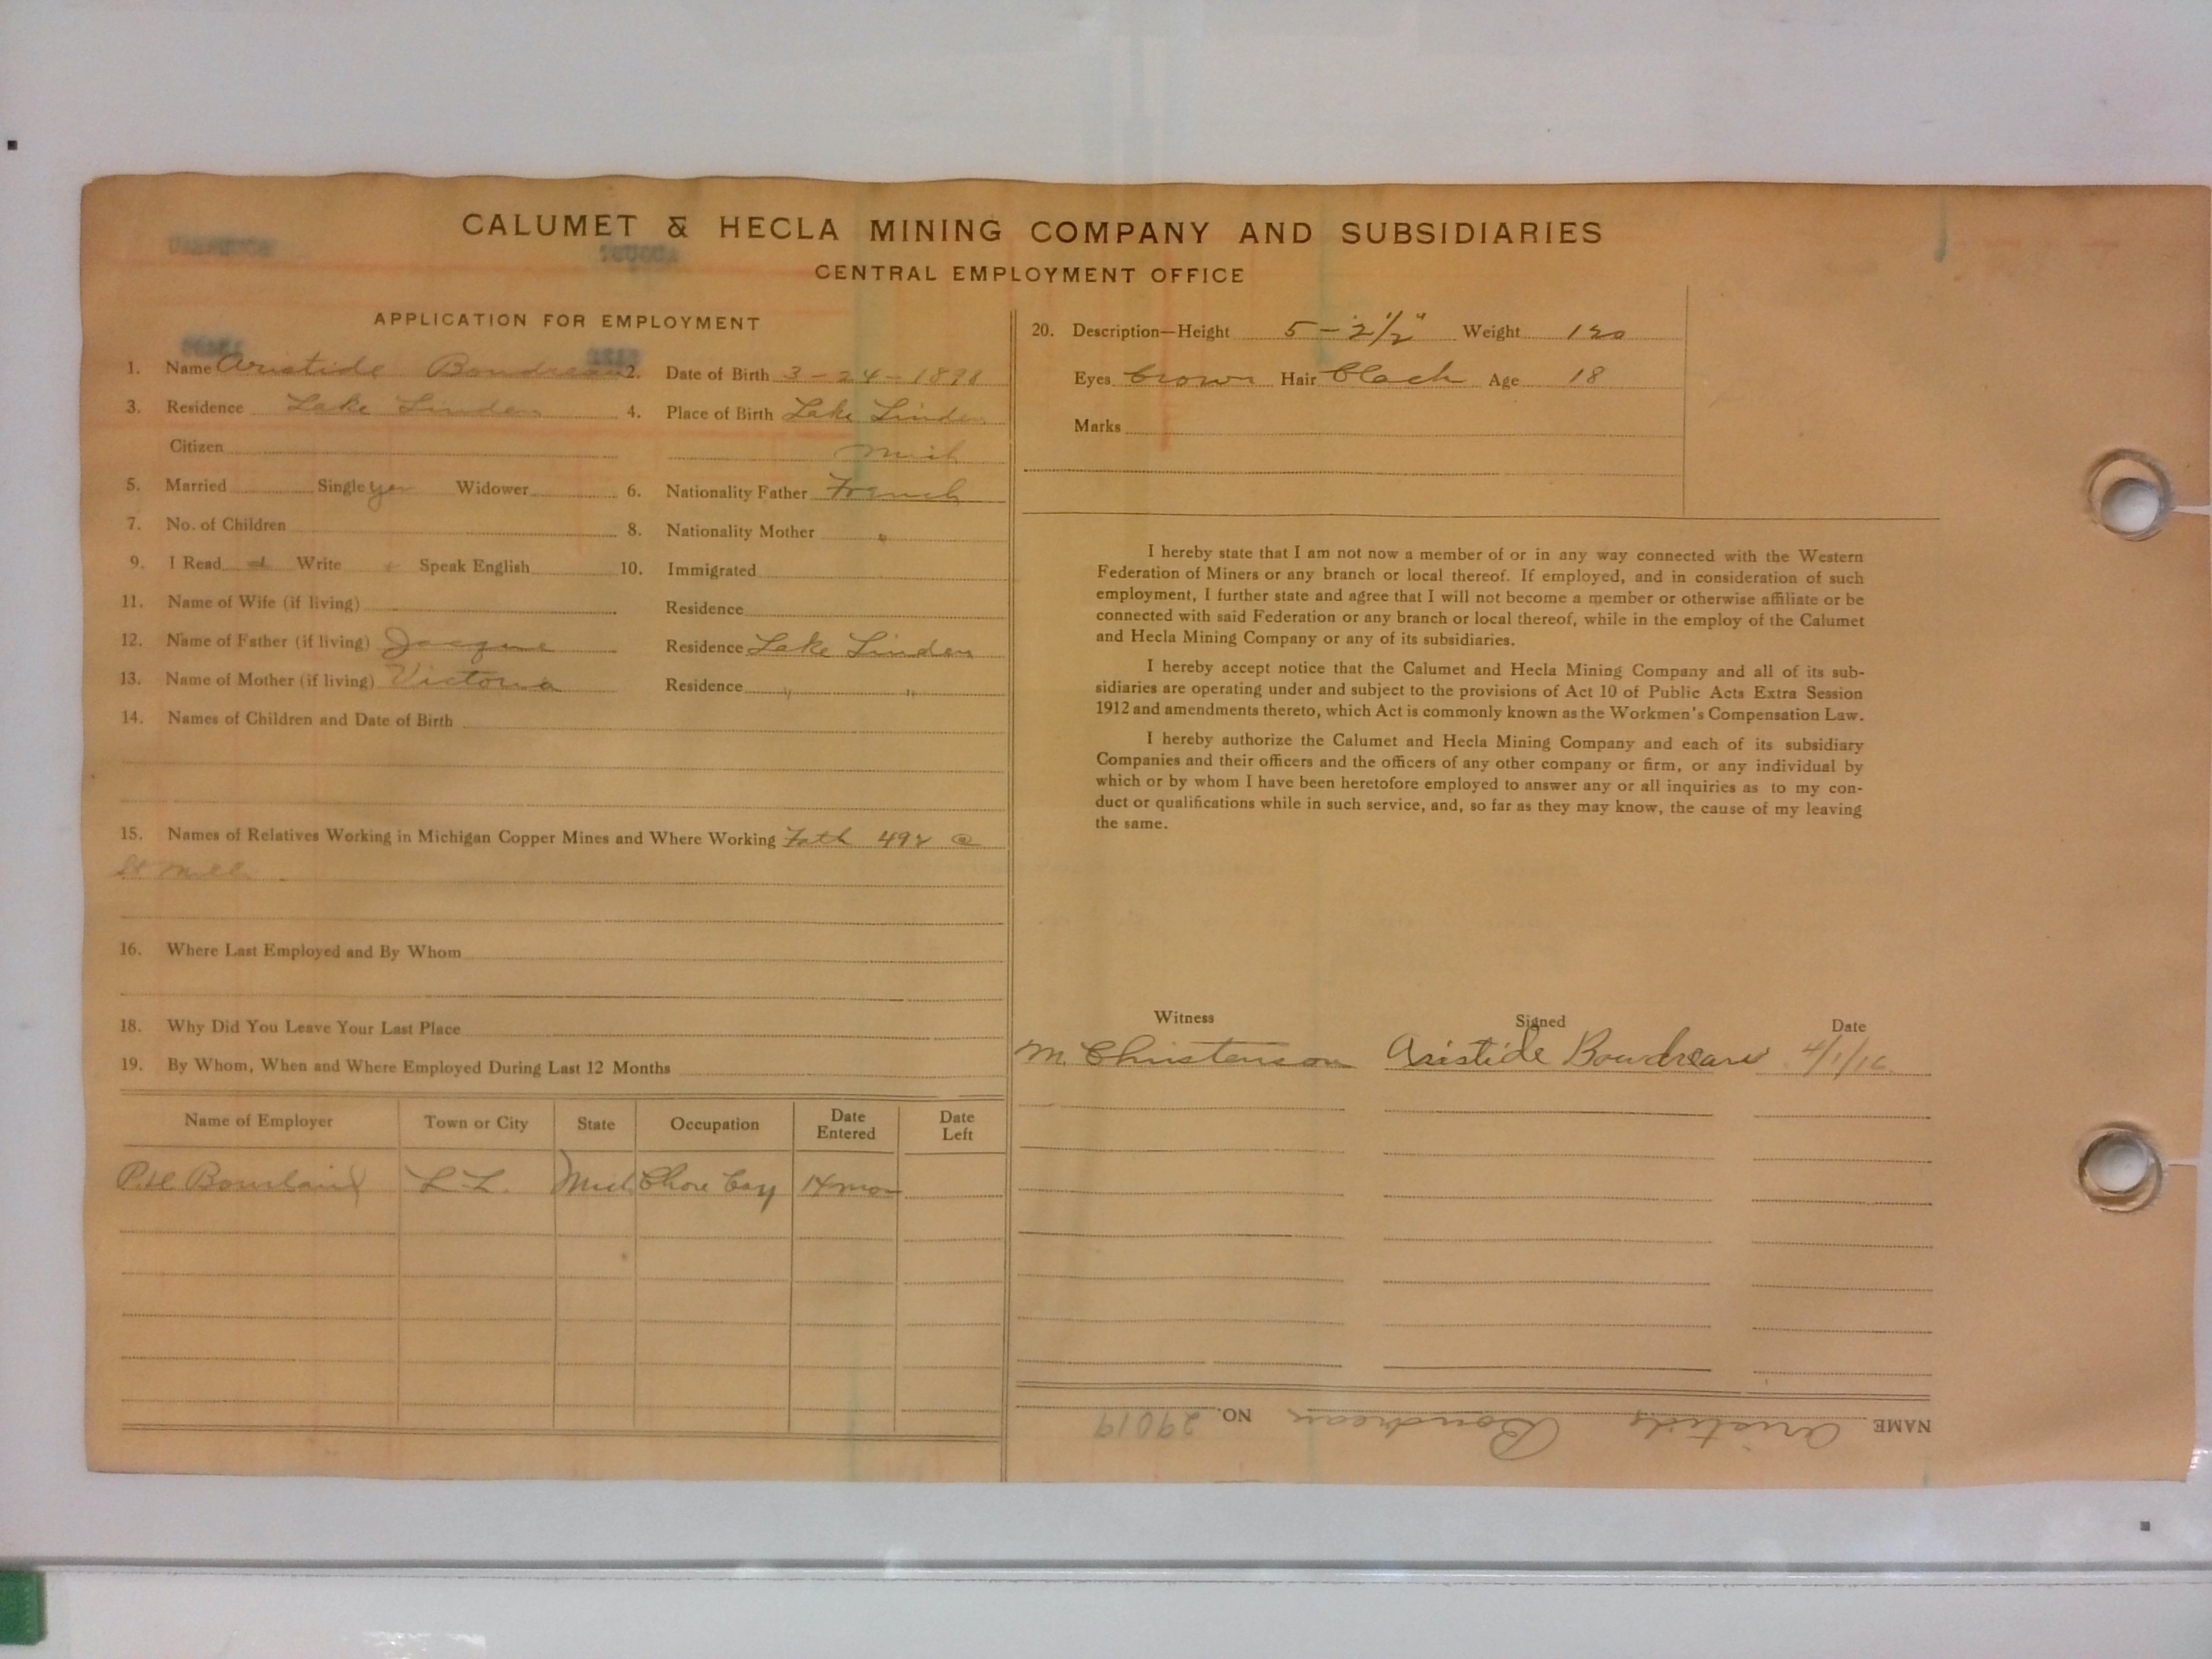 CALUMET & HECLA MINING COMPANY AND SUBSIDIARIES
CENTRAL EMPLOYMENT OFFICE
APPLICATION FOR EMPLOYMENT
1. Name Aristide Boudreau 2. Date of Birth 3-24-1898
3. Residence Lake Linden 4. Place of Birth Lake Linden
Citizen Mich
5. Married Single yes Widower 6. Nationality Father French
7. No. of Children 8. Nationality Mother "
9. I Read Write Speak English 10. Immigrated
11. Name of Wife (if living) Residence
12. Name of Father (if living) Jacque Residence Lake Linden
13. Name of Mother (if living) Victoria Residence " "
14. Names of Children and Date of Birth
15. Names of Relatives Working in Michigan Copper Mines and Where Working Fath 492 @
St Mill.
16. Where Last Employed and By Whom
18. Why Did You Leave Your Last Place
19. By Whom, When and Where Employed During Last 12 Months
Name of Employer Town or City State Occupation Date Entered Date Left
L.L. Mich Chore boy 14 mos
20. Description—Height 5-2½" Weight 120
Eyes brown Hair black Age 18
Marks
I hereby state that I am not now a member of or in any way connected with the Western
Federation of Miners or any branch or local thereof. If employed, and in consideration of such
employment, I further state and agree that I will not become a member or otherwise affiliate or be
connected with said Federation or any branch or local thereof, while in the employ of the Calumet
and Hecla Mining Company or any of its subsidiaries.
I hereby accept notice that the Calumet and Hecla Mining Company and all of its sub-
sidiaries are operating under and subject to the provisions of Act 10 of Public Acts Extra Session
1912 and amendments thereto, which Act is commonly known as the Workmen's Compensation Law.
I hereby authorize the Calumet and Hecla Mining Company and each of its subsidiary
Companies and their officers and the officers of any other company or firm, or any individual by
which or by whom I have been heretofore employed to answer any or all inquiries as to my con-
duct or qualifications while in such service, and, so far as they may know, the cause of my leaving
the same.
Witness Signed Date
M. Christenson Aristide Boudreau 4/1/16
NAME Aristide Boudreau NO. 29019